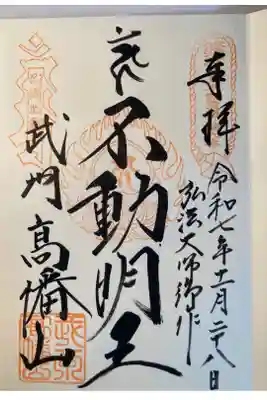 奉拝
令和七年十一月二十八日
弘法大師御作
不動明王
武州 高幡山